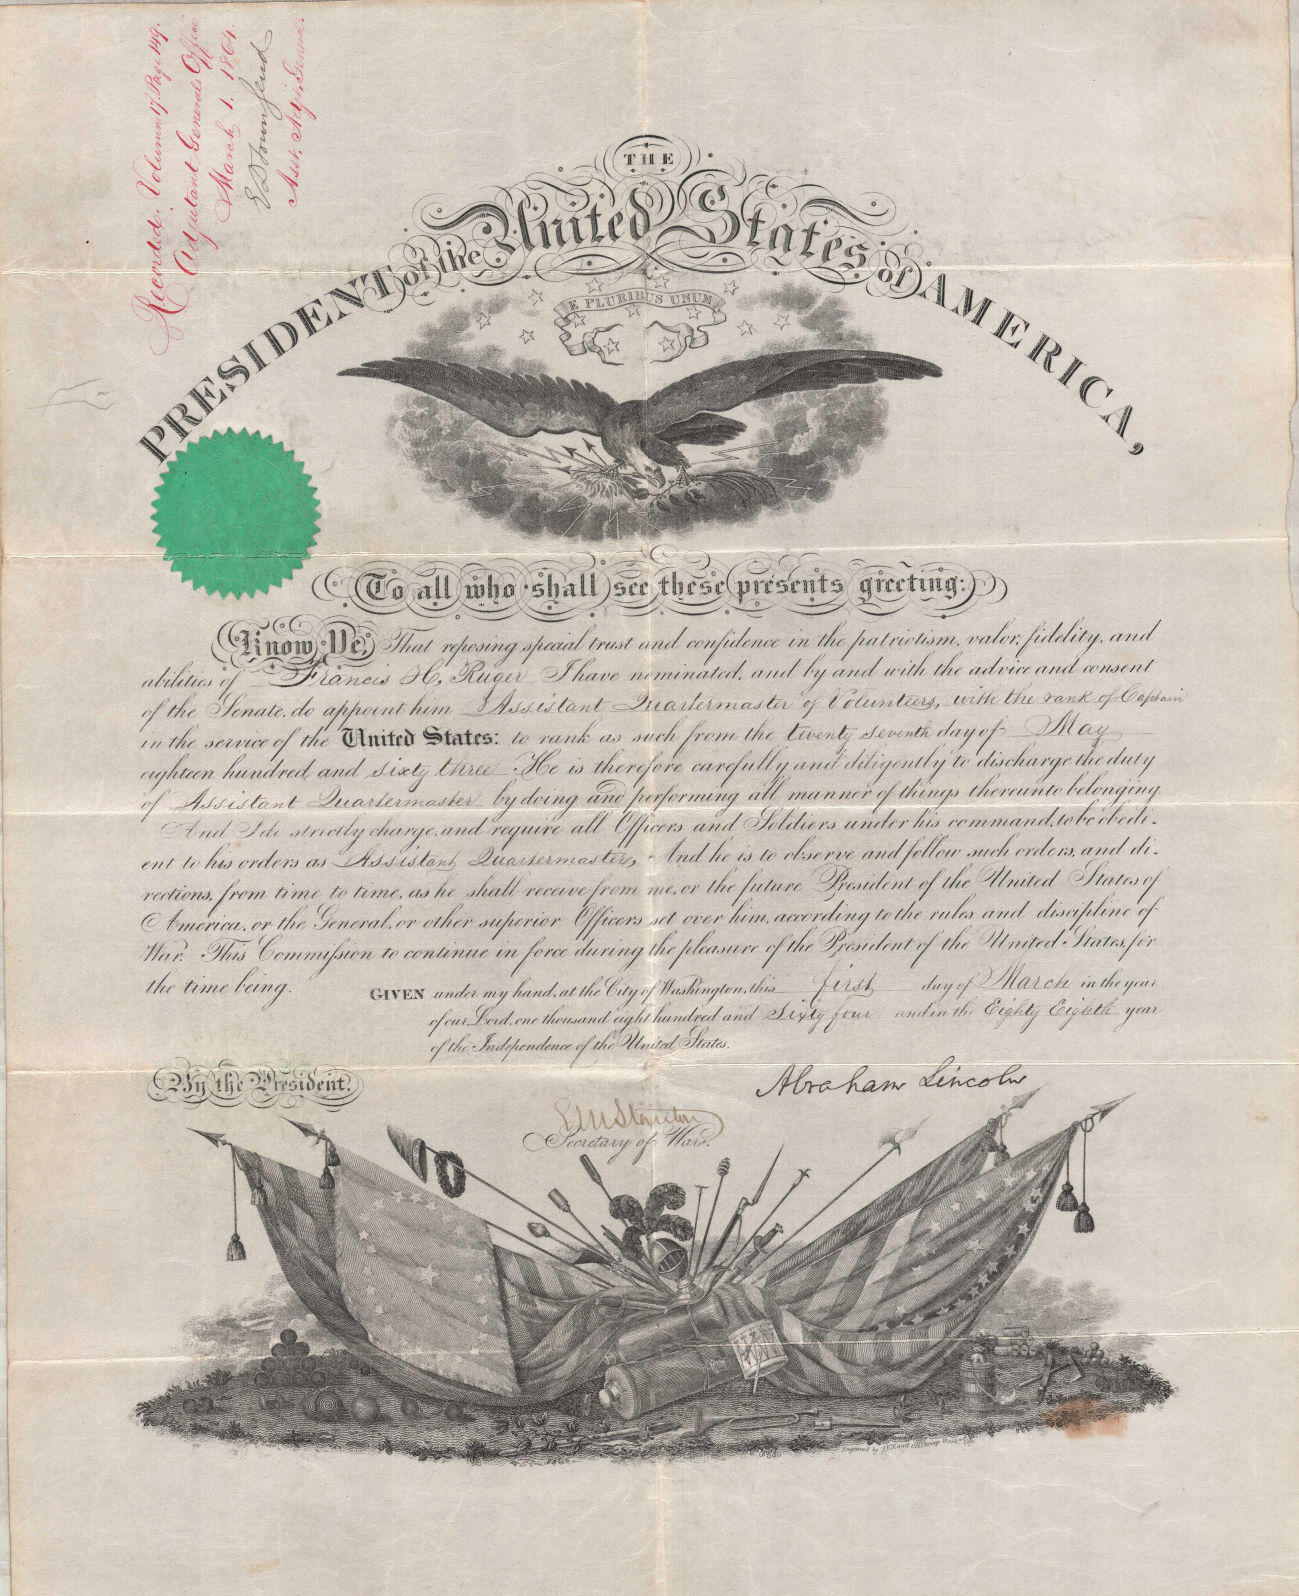 Recorded. Volumn 17. Page 149.
Adjutant Generals Office
March 1. 1864
E D Townsend
Asst. Adjt. General.
THE
PRESIDENT of the United States of AMERICA,
E PLURIBUS UNUM
To all who shall see these presents greeting:
Know Ye, That reposing special trust and confidence in the patriotism, valor, fidelity, and
abilities of Francis H. Ruger I have nominated, and by and with the advice and consent
of the Senate, do appoint him Assistant Quartermaster of Volunteers, with the rank of Captain
in the service of the United States: to rank as such from the twenty seventh day of May
eighteen hundred and sixty three. He is therefore carefully and diligently to discharge the duty
of Assistant Quartermaster by doing and performing all manner of things thereunto belonging.
And I do strictly charge, and require all Officers and Soldiers under his command, to be obedi-
ent to his orders as Assistant Quartermaster, And he is to observe and follow such orders, and di-
rections, from time to time, as he shall receive from me, or the future President of the United States of
America, or the General, or other superior Officers set over him, according to the rules and discipline of
War. This Commission to continue in force during the pleasure of the President of the United States, for
the time being.
GIVEN under my hand, at the City of Washington, this first day of March in the year
of our Lord, one thousand eight hundred and Sixty four and in the Eighty Eighth year
of the Independence of the United States.
By the President.
Abraham Lincoln
E M Stanton
Secretary of War.
Engraved by